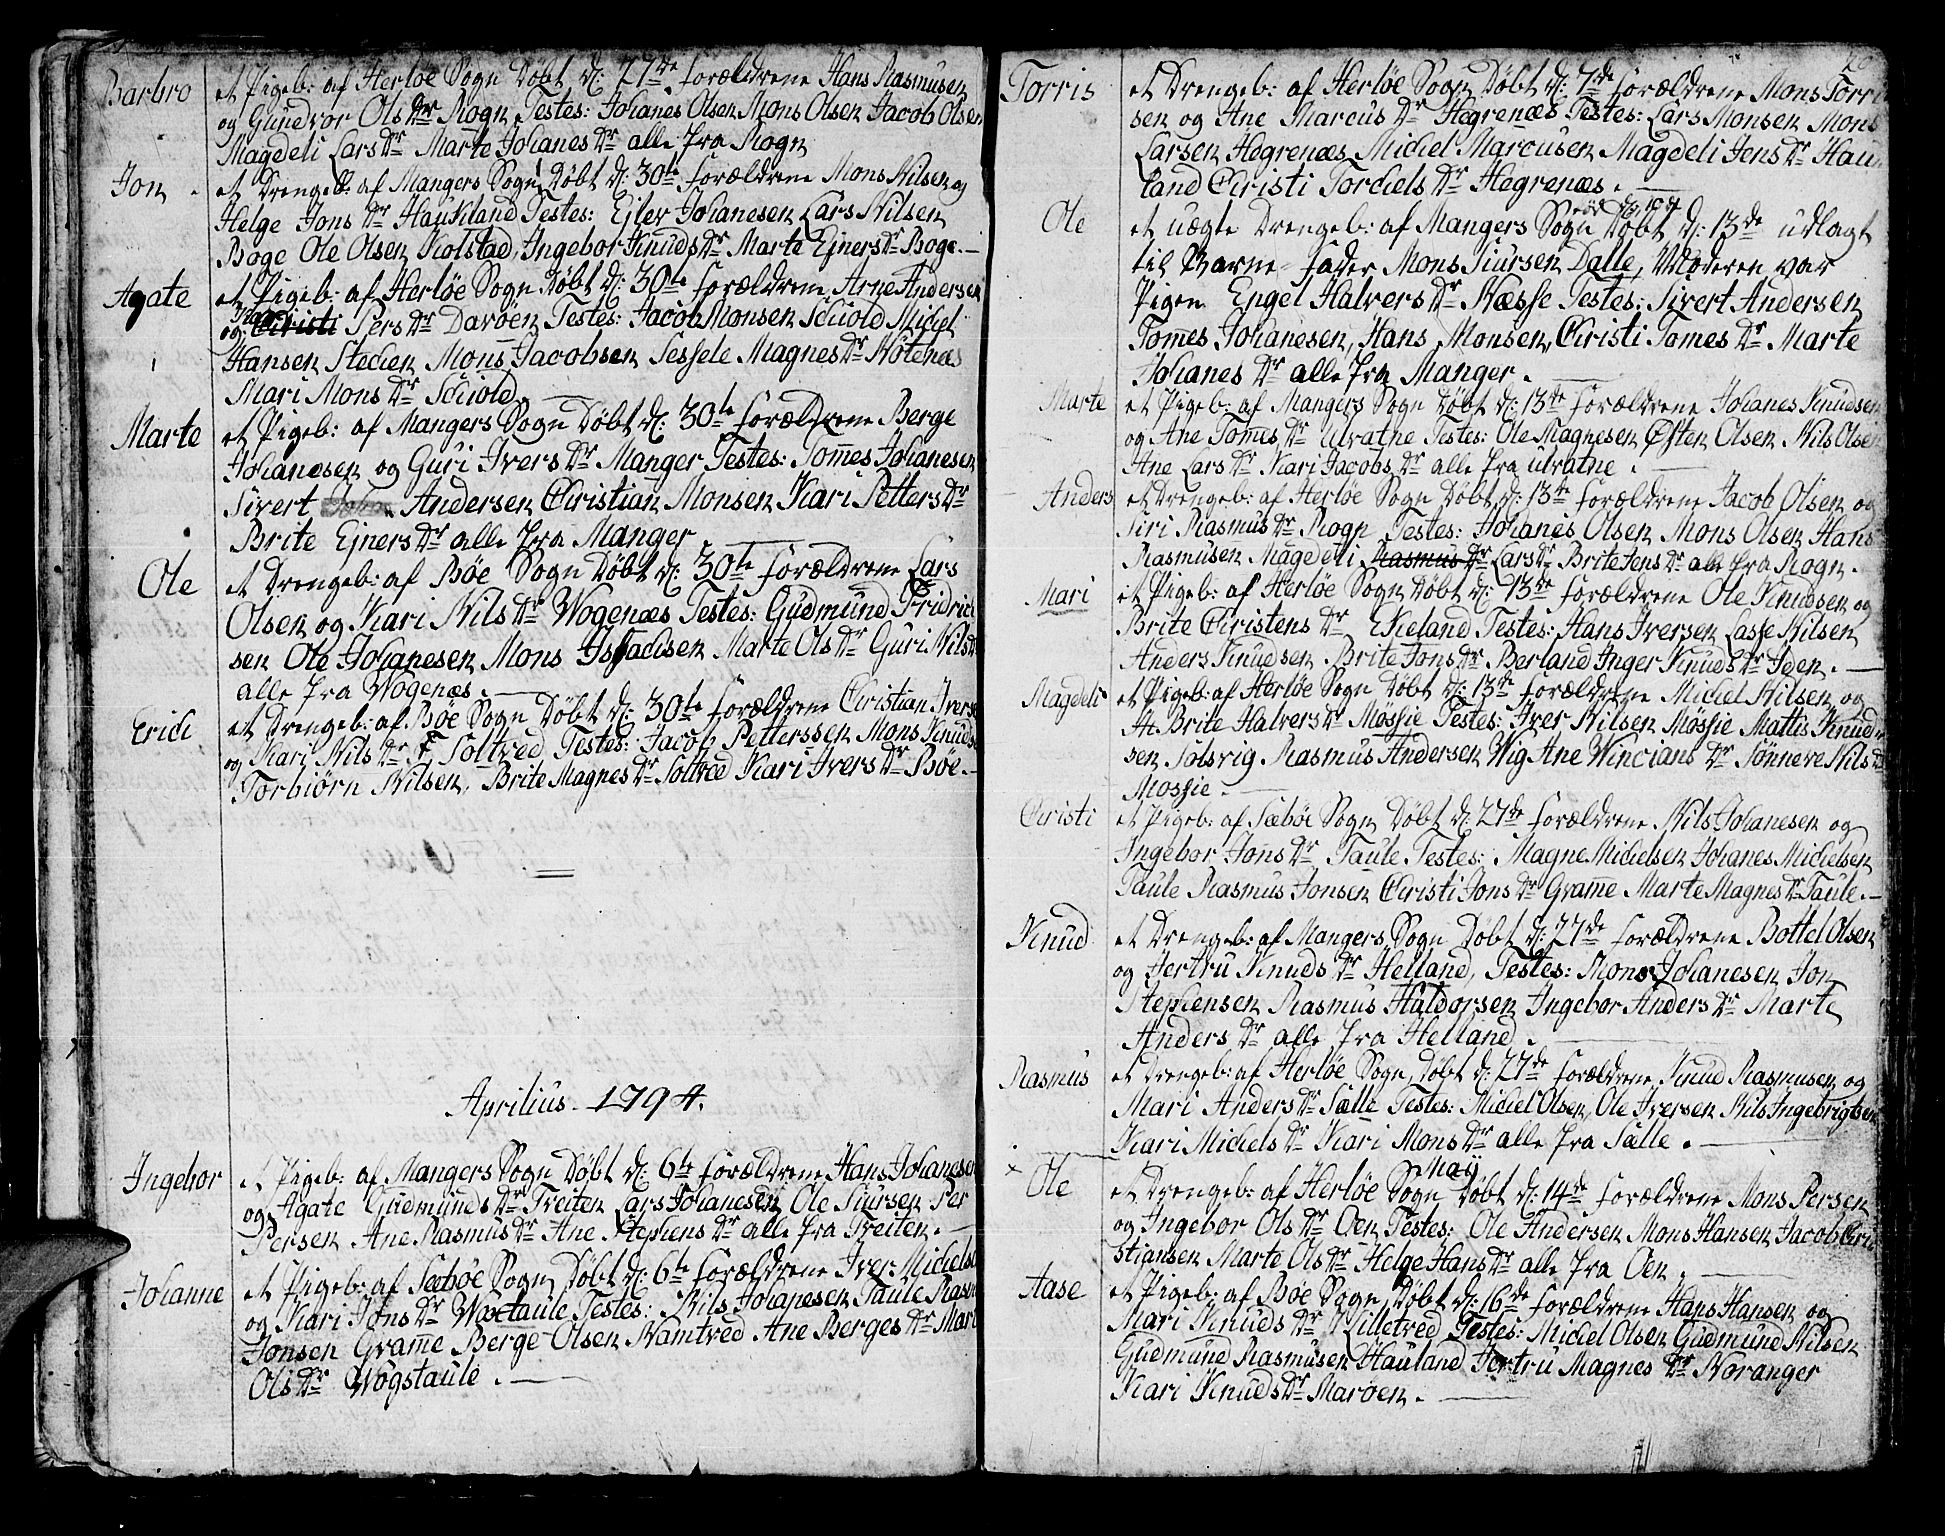 Barbro et Pigeb: af Herløe Sogn Døbt d: 27de Forældrene Hans Rasmusen
og Gundvor Ols Dr Rogn Testes: Johanes Olsen Mons Olsen Jacob Olsen
Magdeli Lars Dr Marte Johanes Dr alle fra Rogn
Jon et Drengeb: af Mangers Sogn Døbt d: 30te Forældrene Mons Nilsen og
Helge Jons Dr Haukland Testes: Ejlev Johanesen Lars Nilsen
Boge Ole Olsen Kolstad, Ingebor Knuds Dr Marte Ejners Dr Boge.
Agate et Pigeb: af Herløe Sogn Døbt d: 30te Forældrene Arne Andersen
og Christi Pers Dr Davøen Testes: Jacob Monsen Schiold Michel
Hansen Stechen Mons Jacobsen Sessele Magnes Dr Nøtenæs
Mari Mons Dr Schiold.
Marte et Pigeb: af Mangers Sogn Døbt d: 30te Forældrene Berge
Johanesen og Guri Ivers Dr Manger Testes: Tomes Johanesen
Sivert Andersen Christian Monsen Kari Petters Dr
Brite Ejners Dr alle fra Manger
Ole et Drengeb: af Bøe Sogn Døbt d: 30te Forældrene Lars
Olsen og Kari Nils Dr Wogenæs Testes: Gudmund Fridrich
sen Ole Johanesen Mons Isachsen Marte Ols Dr Guri Nils Dr
alle fra Wogenæs.
Erich et Drengeb: af Bøe Sogn Døbt d: 30te Forældrene Christian Iverse
og Kari Nils Dr Soltved Testes: Jacob Petterssen Mons Knuds
Torbiørn Nilsen, Brite Magnes Dr Soltved Kari Ivers Dr Bøe.
Aprilius 1794.
Ingebor et Pigeb: af Mangers Sogn Døbt d: 6te Forældrene Hans Johanesen
og Agate Gudmunds Dr Treiten Lars Johanesen Ole Siursen Per
Persen Ane Rasmus Dr Ane Stephens Dr alle fra Treiten.
Johanne et Pigeb: af Sæbøe Sogn Døbt d: 6te Forældrene Iver Michels
og Kari Jons Dr Woxtaule Testes: Nils Johanesen Taule Rasm
Jonsen Grame Berge Olsen Namtved Ane Berges Dr Mari
Ols Dr Wogstaule.
Torris et Drengeb: af Herløe Sogn Døbt d: 7de Forældrene Mons Torri
sen og Ane Marcus Dr Hegrenæs Testes: Lars Monsen Mons
Larsen Hegrenæs Michel Marcusen Magdeli Jens Dr Hau
land Christi Torchels Dr Hegrenæs.
Ole et uægte Drengeb: af Mangers Sogn Døbt d: 13de udlagt
til Barne-Fader Mons Siursen Dalle, Moderen var
Pigen Engel Halvers Dr Næsse Testes: Sivert Andersen
Tomes Johanesen, Hans Monsen, Christi Tomes Dr Marte
Johanes Dr alle fra Manger.
Marte et Pigeb: af Mangers Sogn Døbt d: 13te Forældrene Johanes Knudsen
og Ane Tomes Dr Ulvatne Testes: Ole Magnesen Østen Olsen Nils Olsen
Ane Lars Dr Kari Jacobs Dr alle fra Ulvatne.
Anders et Drengeb: af Herløe Sogn Døbt d: 13te Forældrene Jacob Olsen og
Siri Rasmus Dr Rogn Testes: Johanes Olsen Mons Olsen Hans
Rasmusen Magdeli Rasmus Dr Lars Dr Brite Jens Dr alle fra Rogn.
Mari et Pigeb: af Herløe Sogn Døbt d: 13de Forældrene Ole Knudsen og
Brite Christens Dr Ekeland Testes: Hans Iversen Lasse Nilsen
Anders Knudsen Brite Jons Dr Berland Inger Knuds Dr Iden.
Magdeli et Pigeb: af Herløe Sogn Døbt d: 13te Forældrene Michel Nilsen og
Brite Halvers Dr Møssie Testes: Iver Nilsen Møssie Mattis Knud
sen Solsvig Rasmus Andersen Wig Ane Wincians Dr Sønneve Nils Dr
Mossie.
Christi et Pigeb: af Sæbøe Sogn Døbt d: 27de Forældrene Nils Johanesen og
Ingebor Jons Dr Taule Testes: Magne Michelsen Johanes Michelsen
Taule Rasmus Jonsen Christi Jons Dr Grame Marte Magnes Dr Taule.
Knud et Drengeb: af Mangers Sogn Døbt d: 27de Forældrene Bottel Olsen
og Jertru Knuds Dr Helland, Testes: Mons Johanesen Jon
Stephensen Rasmus Haldorsen Ingebor Anders Dr Marte
Anders Dr alle fra Helland.
Rasmus et Drengeb: af Herløe Sogn, Døbt d: 27de Forældrene Knud Rasmusen og
Mari Anders Dr Sælle Testes: Michel Olsen, Ole Iversen Nils Ingebrigtsen
Kari Michels Dr Kari Mons Dr alle fra Sælle.
May
Ole et Drengeb: af Herløe Sogn Døbt d: 14de Forældrene Mons Persen
og Ingebor Ols Dr Oen Testes: Ole Andersen Mons Hansen Jacob Chri
stiansen Marte Ols Dr Helge Hans Dr alle fra Oen.
Aase et Pigeb: af Bøe Sogn Døbt d: 16de Forældrene Hans Hansen og
Mari Knuds Dr Lilletved Testes: Michel Olsen Gudmund Nilsen
Gudmund Rasmusen Hauland Jertru Magnes Dr Noranger
Kari Knuds Dr Marøen.